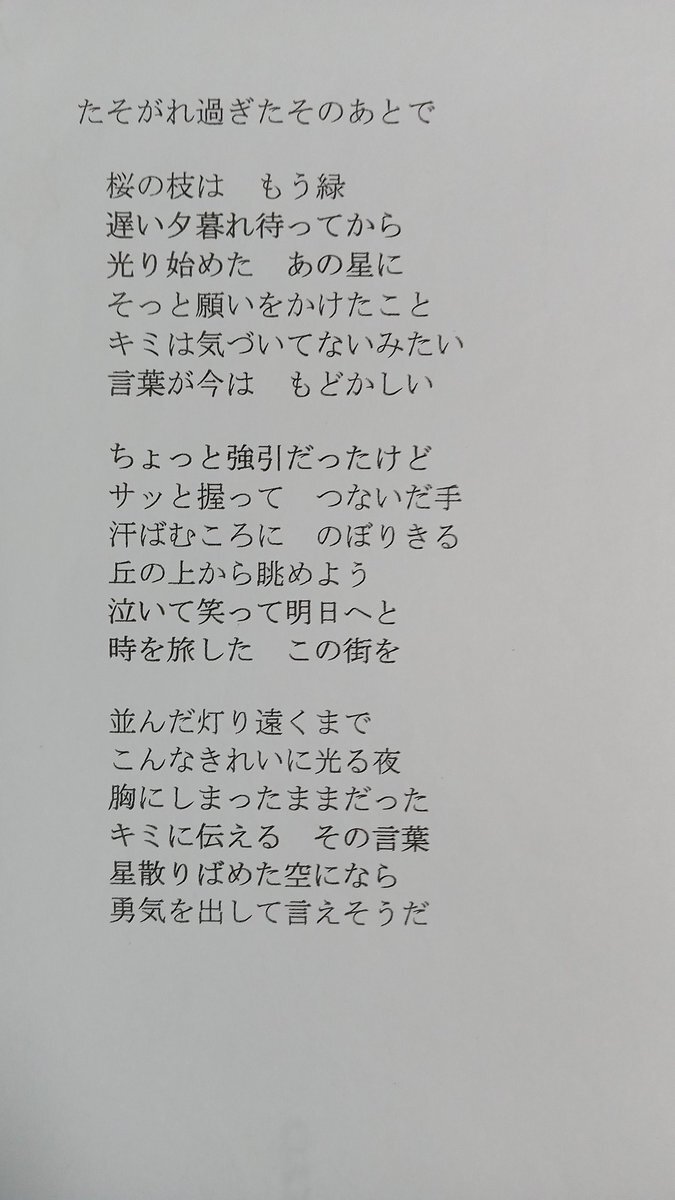 たそがれ過ぎたそのあとで
桜の枝は　もう緑
遅い夕暮れ待ってから
光り始めた　あの星に
そっと願いをかけたこと
キミは気づいてないみたい
言葉が今は　もどかしい
ちょっと強引だったけど
サッと握って　つないだ手
汗ばむころに　のぼりきる
丘の上から眺めよう
泣いて笑って明日へと
時を旅した　この街を
並んだ灯り遠くまで
こんなきれいに光る夜
胸にしまったままだった
キミに伝える　その言葉
星散りばめた空になら
勇気を出して言えそうだ